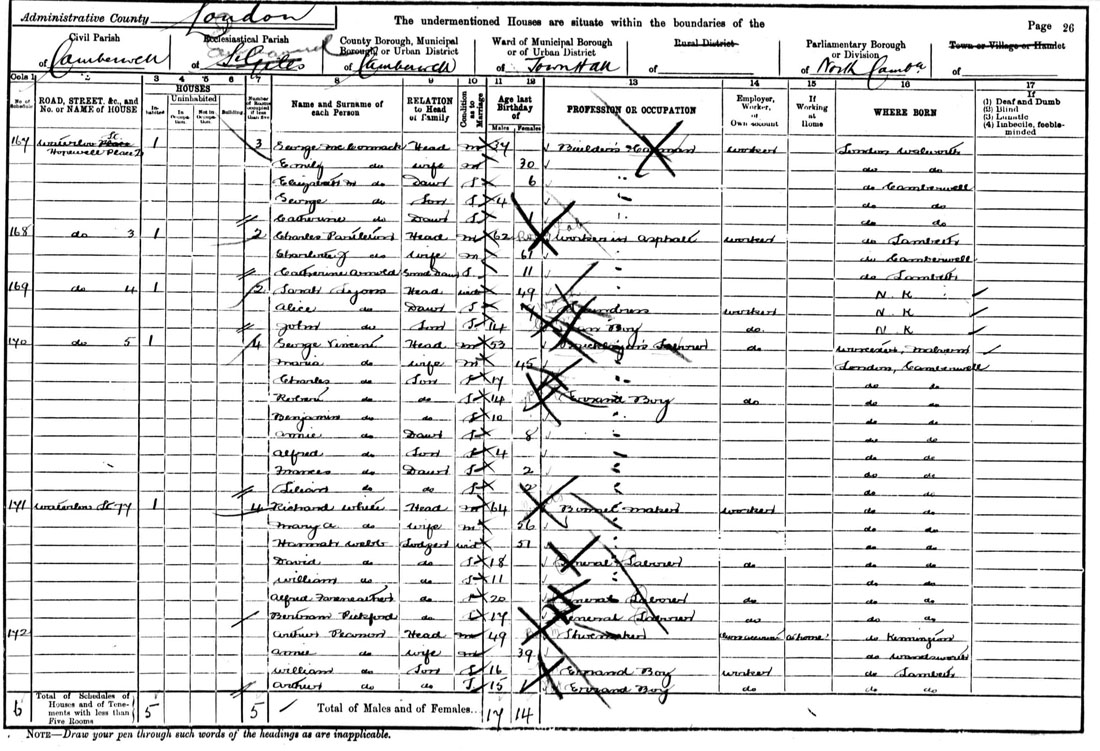 Administrative County London
The undermentioned Houses are situate within the boundaries of the
Page 26
Civil Parish of Camberwell
Ecclesiastical Parish of St Giles
County Borough, Municipal Borough, or Urban District of Camberwell
Ward of Municipal Borough or of Urban District of Town Hall
Rural District of
Parliamentary Borough or Division of North Camb
Town or Village or Hamlet of
Cols 1 2 3 4 5 6 7 8 9 10 11 12 13 14 15 16 17
No. of Schedule ROAD, STREET, &c., and No. or NAME of HOUSE HOUSES Inhabited Uninhabited In Occupation Not in Occupation Building Number of Rooms occupied if less than five Name and Surname of each Person RELATION to Head of Family Condition as to Marriage Age last Birthday of Males Females PROFESSION OR OCCUPATION Employer, Worker, or Own account If Working at Home WHERE BORN If (1) Deaf and Dumb (2) Blind (3) Lunatic (4) Imbecile, feeble-minded
167 Waterloo St Place Hopewell Place 2 1 3 George McCormack Head M Builder's worker London Walworth
Emily do wife M 30 do do
Elizabeth M do Daur S 6 do Camberwell
George do Son S 4 do do
Catherine do Daur S 1 do do
168 do 3 1 2 Charles Head M 62 worker in asphalt worker do Lambeth
Charlotte J do wife M do Camberwell
Catherine Arnold Grand Daur S 11 do Lambeth
169 do 4 1 2 Sarah Lyons Head wid 49 N.K
Alice do Daur S worker N.K
John do Son S 14 Boy do N.K
170 do 5 1 4 George Vincent Head M 53 Bricklayer's Labourer do Worcester, Malvern
Maria do wife M 45 London, Camberwell
Charles do Son S 17 do do
Robert do do S 14 Errand Boy do do do
Benjamin do do S 10 do do
Annie do Daur S 8 do do
Alfred do Son S 4 do do
Frances do Daur S 2 do do
Lilian do do S do do
171 Waterloo St 77 1 4 Richard White Head M 64 maker worker do do
Mary A do wife M 56 do do
Hannah Webb Lodger wid 51 do do
David do do S 18 General Labourer do do do
William do do S 11 do do
Alfred do S 20 General Labourer do do do
Bertram Pickford do S 17 General Labourer do do do
172 Arthur Pearman Head M 49 Shoemaker own account at home do Kennington
Annie do wife M 39 do Wandsworth
William do Son S 16 Errand Boy worker do Lambeth
Arthur do do S 15 Errand Boy do do do
6 Total of Schedules of Houses and of Tenements with less than Five Rooms 5 5 Total of Males and of Females... 17 14
NOTE—Draw your pen through such words of the headings as are inapplicable.